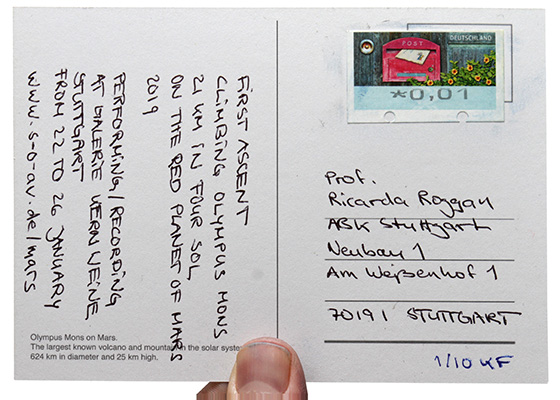 FIRST ASCENT
CLIMBING OLYMPUS MONS
21 KM IN FOUR SOL
ON THE RED PLANET OF MARS
2019
PERFORMING/RECORDING
AT GALERIE KERNWEINE
STUTTGART
FROM 22 TO 26 JANUARY
www.s-o-av.de/mars
Olympus Mons on Mars.
The largest known volcano and mountain in the solar system
624 km in diameter and 25 km high.
POST
DEUTSCHLAND
*0,01
Prof.
Ricarda Roggan
ABK Stuttgart
Neubau 1
Am Weißenhof 1
70191 STUTTGART
1/10 KF